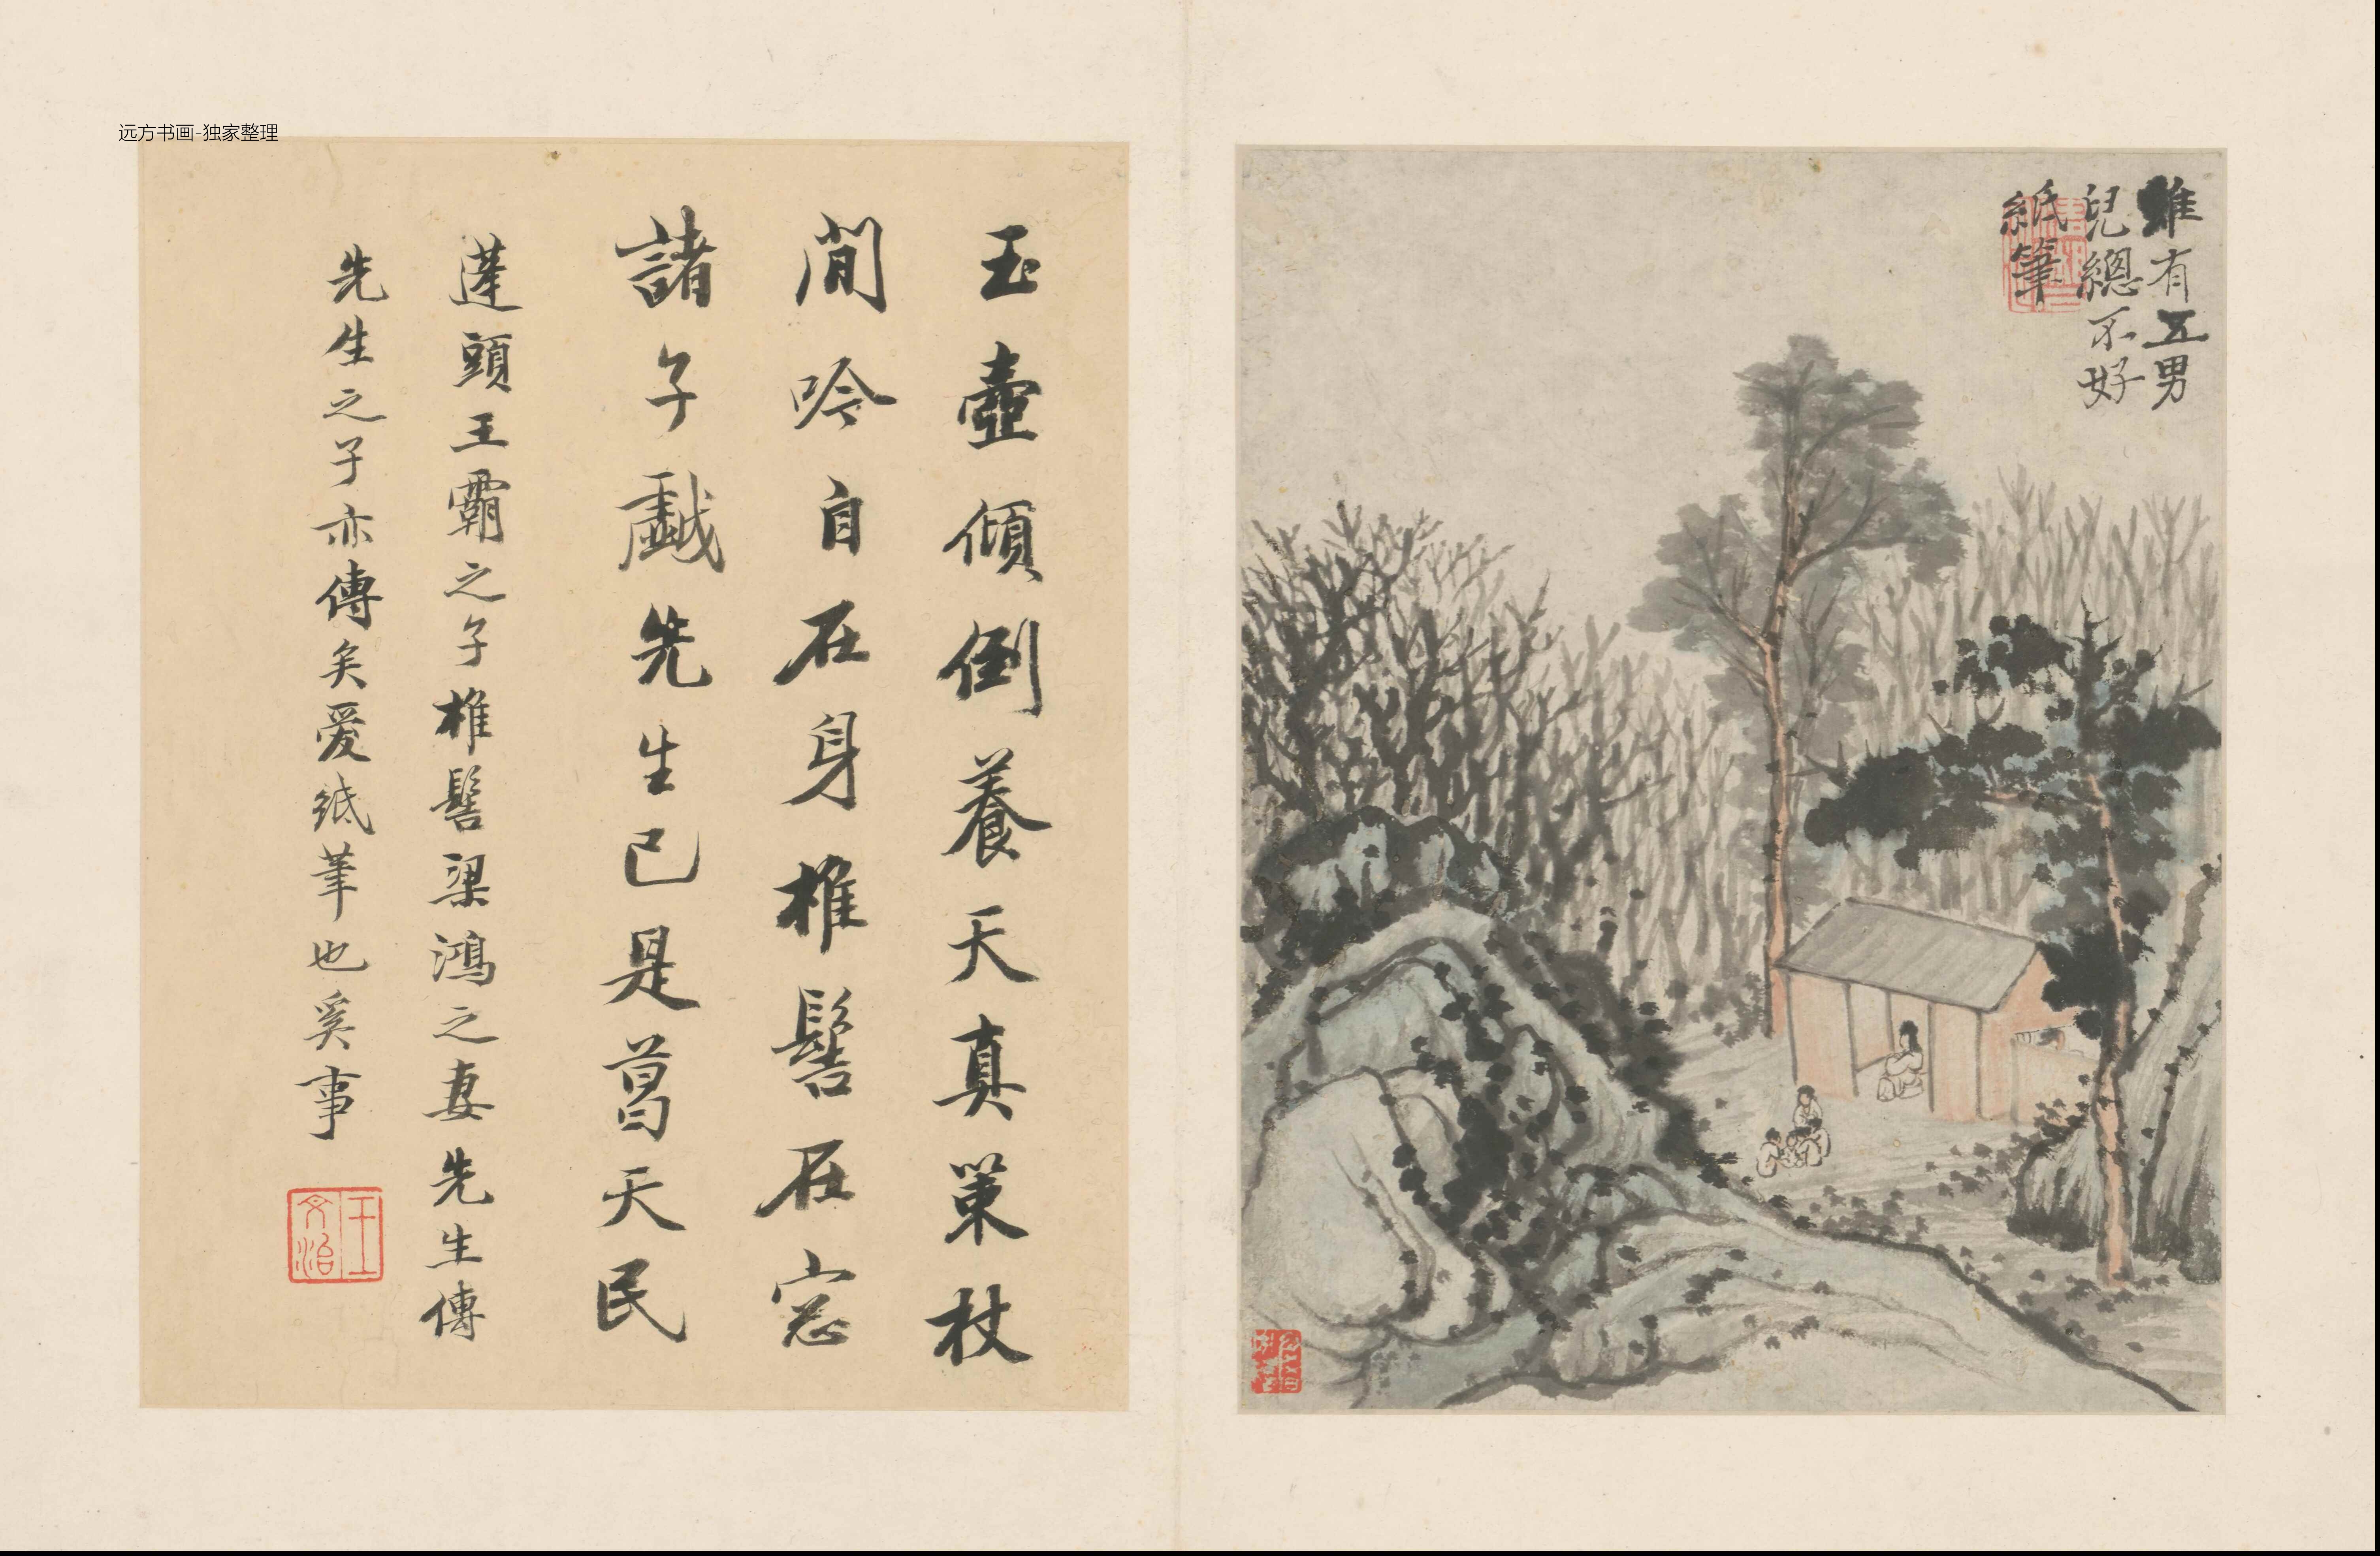 远方书画-独家整理
雖有五男
兒總不好
紙筆
玉壺傾倒養天真策杖
閒吟自在身椎髻在窓
諸子戲先生已是葛天民
蓬頭王霸之子椎髻梁鴻之妻先生傳
先生之子亦傳矣愛紙筆也奚事
王文治